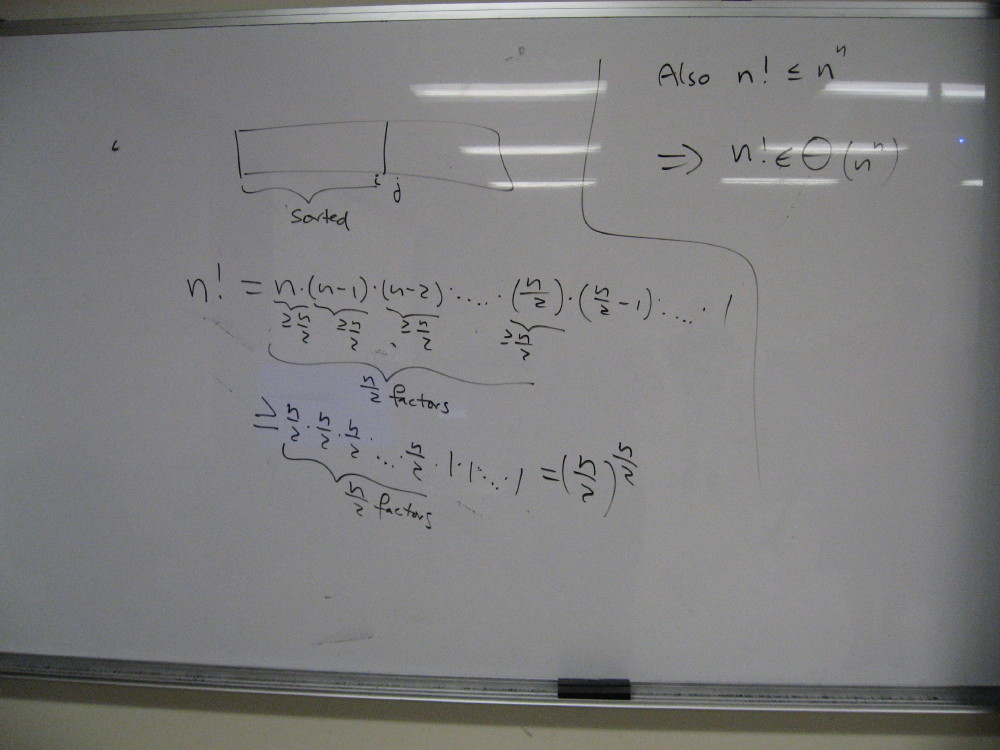 i j
sorted
n! = n·(n-1)·(n-2)·.....·(n/2)·(n/2-1)·....·1
≥n/2 ≥n/2 ≥n/2 ≥n/2
n/2 factors
≥ n/2·n/2·n/2·...n/2·1·1·...1 = (n/2)^n/2
n/2 factors
Also n! ≤ n^n
⇒ n! ∈ Θ(n^n)